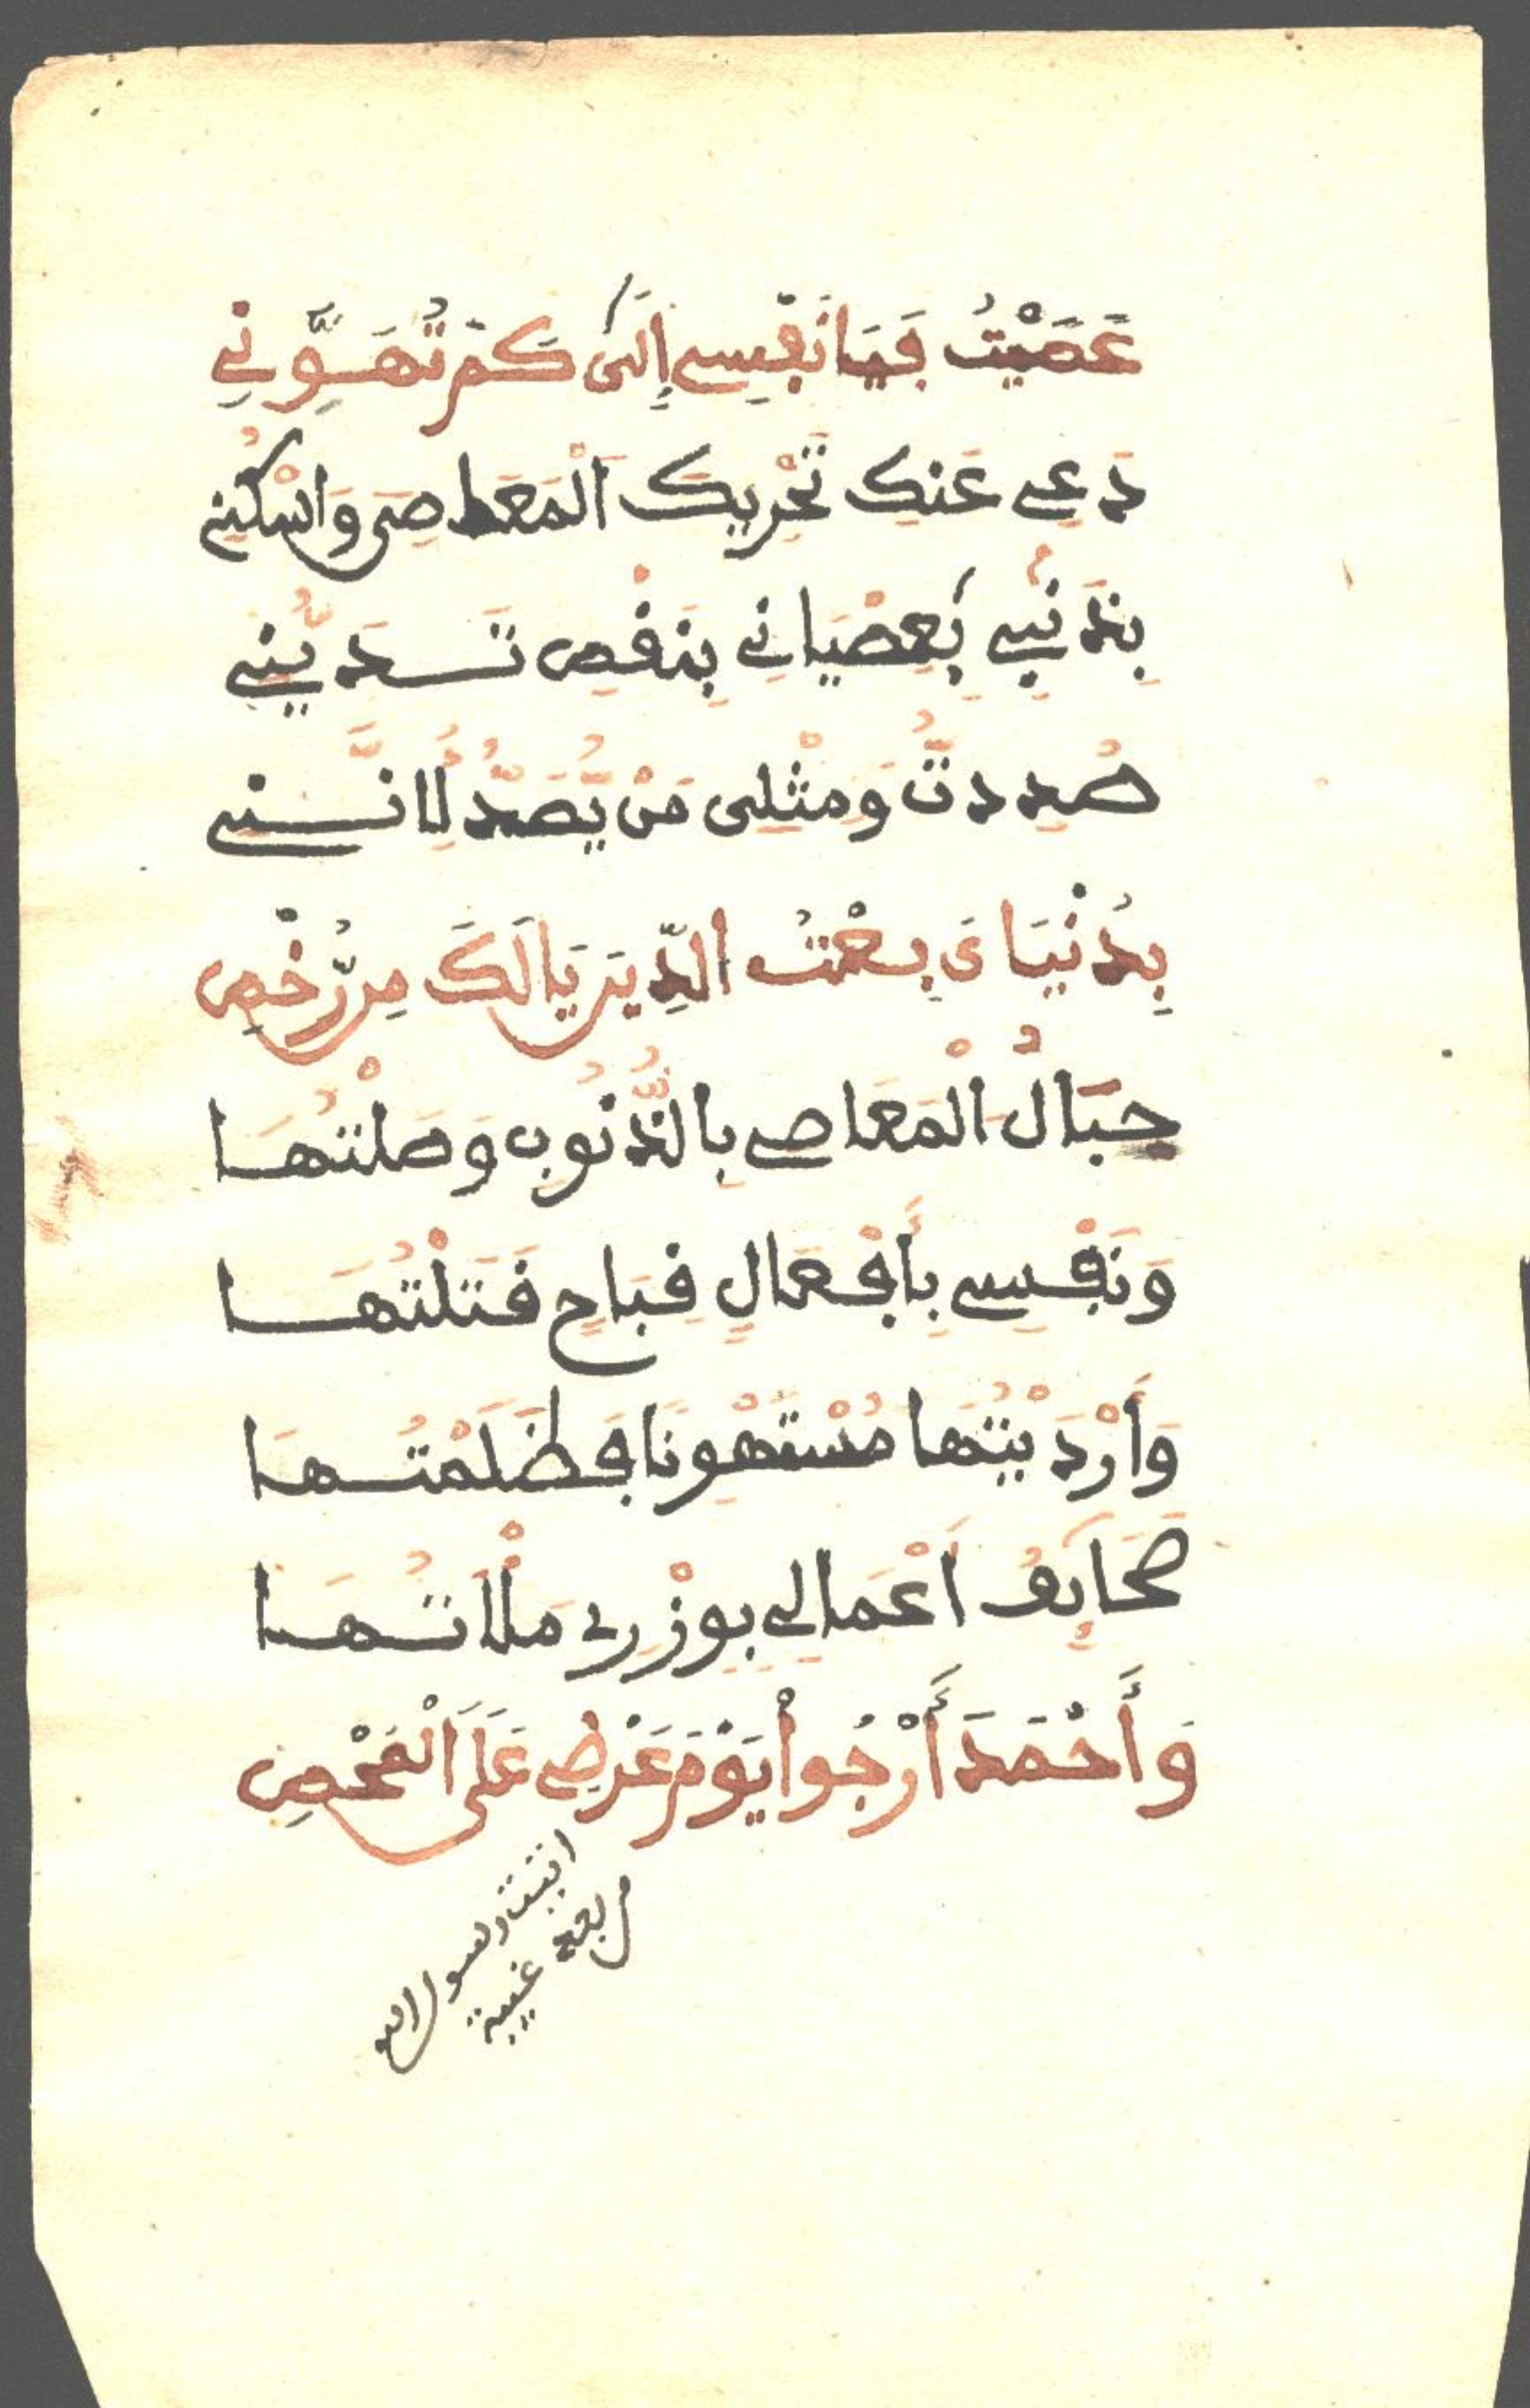 عَصَيْتُ فَيَا نَفْسِے إِلَىٰ كَمْ تُهَوِّنِے
دَعِے عَنكِ تَحْرِيكَ الْمَعَاصِى وَاسْكُنِے
بِذَنْبِے بِعِصْيَانِے بِنَقْصِ تَدَيُّنِے
صُدِدتُّ وَمِثْلِى مَنْ يُّصَدُّ لِأَنَّنِے
بِدُنْيَاىَ بِعْتُ الدِّينَ يَا لَكَ مِن رُّخْصِ
حِبَالُ الْمَعَاصِے بِالذُّنُوبِ وَصَلْتُهَا
وَنَفْسِے بِأَفْعَالٍ قِبَاحٍ قَتَلْتُهَا
وَأَرْدَيْتُهَا مُسْتَهْوِنًا فَظَلَمْتُهَا
صَحَايِفُ أَعْمَالِے بِوِزْرِے مَلَأْتُهَا
وَأَحْمَدَ أَرْجُواْ يَوْمَ عَرْضِے عَلَى الْفَحْصِ
رسول الله
غيبة